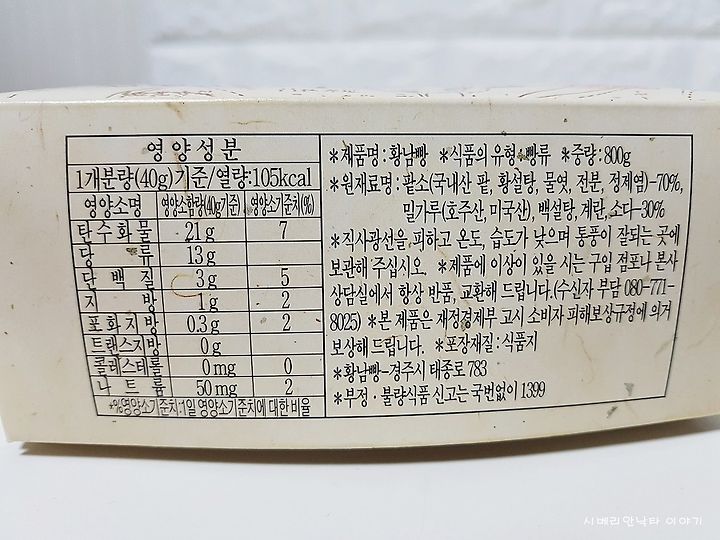 영양성분
1개분량(40g)기준/열량:105kcal
영양소명 영양소함량(40g기준) 영양소기준치(%)
탄수화물 21g 7
당류 13g
단백질 3g 5
지방 1g 2
포화지방 0.3g 2
트랜스지방 0g
콜레스테롤 0mg 0
나트륨 50mg 2
*%영양소기준치:1일 영양소기준치에 대한 비율
*제품명:황남빵 *식품의 유형:빵류 *중량:800g
*원재료명:팥소(국내산 팥, 황설탕, 물엿, 전분, 정제염)-70%,
밀가루(호주산, 미국산), 백설탕, 계란, 소다-30%
*직사광선을, 피하고 온도, 습도가 낮으며 통풍이 잘되는 곳에
보관해 주십시오. *제품에 이상이 있을 시는 구입 점포나 본사
상담실에서 항상 반품, 교환해 드립니다.(수신자 부담 080-771-
8025) *본 제품은 재정경제부 고시 소비자 피해보상규정에 의거
보상해 드립니다. *포장재질:식품지
*황남빵-경주시 태종로 783
*부정·불량식품 신고는 국번없이 1399
시베리안낙타 이야기